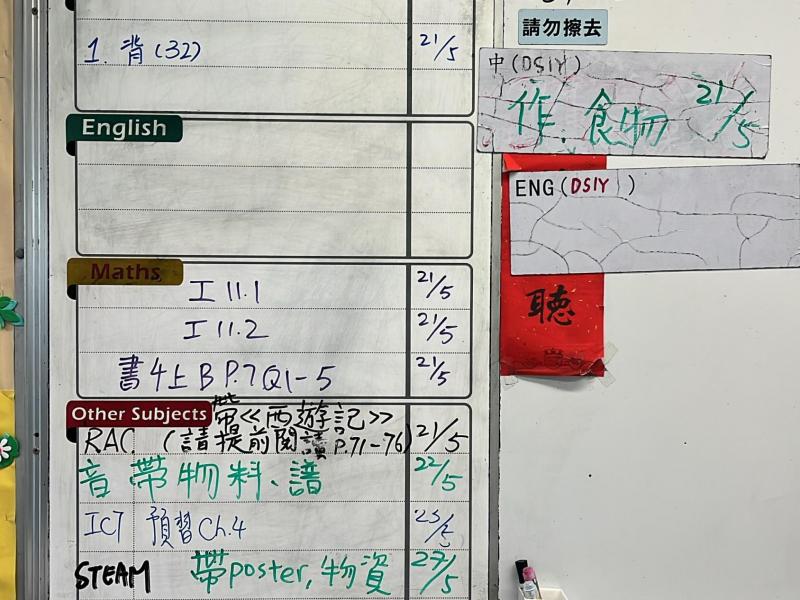 1. 背(32) 21/5
English
Maths
工 11.1 21/5
工 11.2 21/5
書4上B P.7 Q1-5 21/5
Other Subjects
帶<<西遊記>>
RAC. (請提前閱讀 P.71-76) 21/5
音 帶物料、譜 22/5
ICT 預習Ch.4 23/5
STEAM 帶poster, 物資 27/5
請勿擦去
中(DSIY)
作. 食物 21/5
ENG(DSIY)
聽